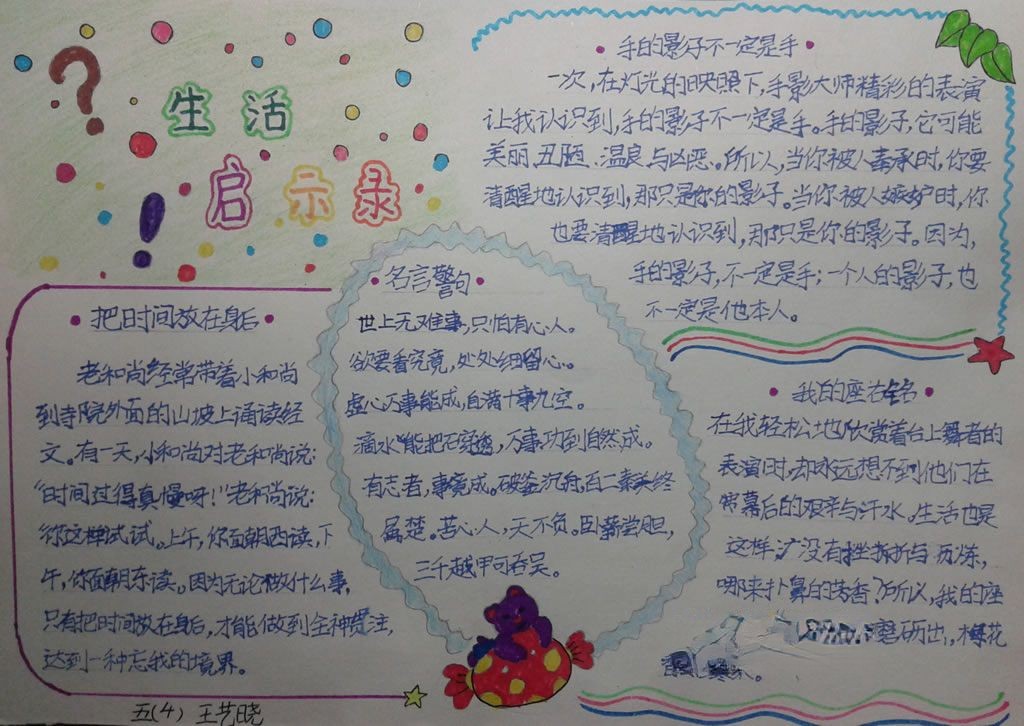 生活
启示录
手的影子不一定是手
一次,在灯光的映照下,手影大师精彩的表演
让我认识到,手的影子不一定是手。手的影子,它可能
美丽、丑陋、温良与凶恶。所以,当你被人奉承时,你要
清醒地认识到,那只是你的影子。当你被人嫉妒时,你
也要清醒地认识到,那只是你的影子。因为,
手的影子,不一定是手;一个人的影子,也
不一定是他本人。
把时间放在身后
老和尚经常带着小和尚
到寺院外面的山坡上诵读经
文。有一天,小和尚对老和尚说:
“时间过得真慢呀!”老和尚说:
你这样试试。上午,你面朝西读,下
午,你面朝东读。因为无论做什么事,
只有把时间放在身后,才能做到全神贯注,
达到一种忘我的境界。
名言警句
世上无难事,只怕有心人。
欲要看究竟,处处细留心。
虚心万事能成,自满十事九空。
滴水能把石穿透,万事功到自然成。
有志者,事竟成。破釜沉舟,百二秦关终
属楚。苦心人,天不负。卧薪尝胆,
三千越甲可吞吴。
我的座右铭
在我轻松地欣赏着台上舞者的
表演时,却永远想不到他们在
常幕后的艰辛与汗水。生活也是
这样,没有挫折与历炼,
哪来扑鼻的芳香?所以,我的座
磨砺出,梅花
五(4) 王艺晓